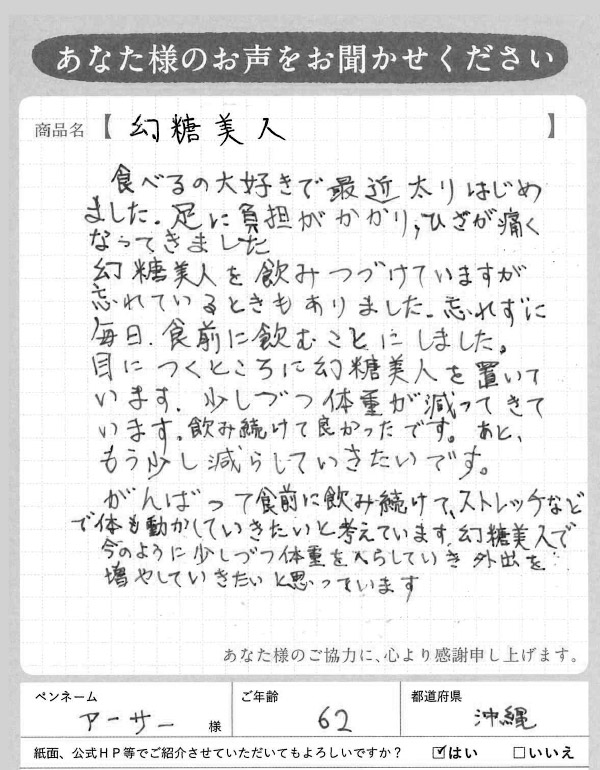 あなた様のお声をお聞かせください
商品名【 幻糖美人 】
食べるの大好きで最近太りはじめ
ました。足に負担がかかり、ひざが痛く
なってきました
幻糖美人を飲みつづけていますが
忘れているときもありました。忘れずに
毎日、食前に飲むことにしました。
目につくところに幻糖美人を置いて
います。少しづつ体重が減ってきて
います。飲み続けて良かったです。あと、
もう少し減らしていきたいです。
がんばって食前に飲み続けて、ストレッチなど
で体も動かしていきたいと考えています。幻糖美人で
今のように少しづつ体重をへらしていき外出を
増やしていきたいと思っています
あなた様のご協力に、心より感謝申し上げます。
ペンネーム ご年齢 都道府県
アーサー 様 62 沖縄
紙面、公式HP等でご紹介させていただいてもよろしいですか? ☑はい □いいえ